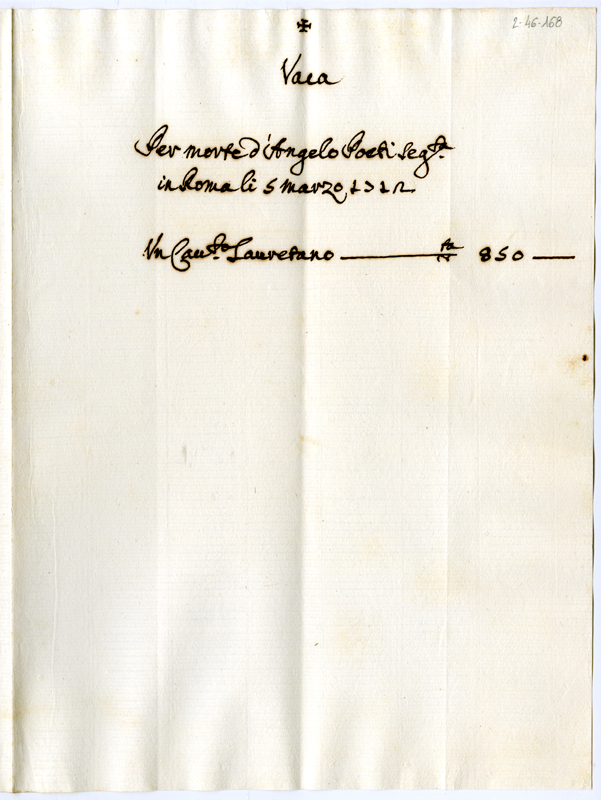 ✠
2-46-168
Vaca
Per morte d'Angelo Poeti seg.ta
in Roma li 5 marzo 1712
Un Cau.to Lauretano — 850 —